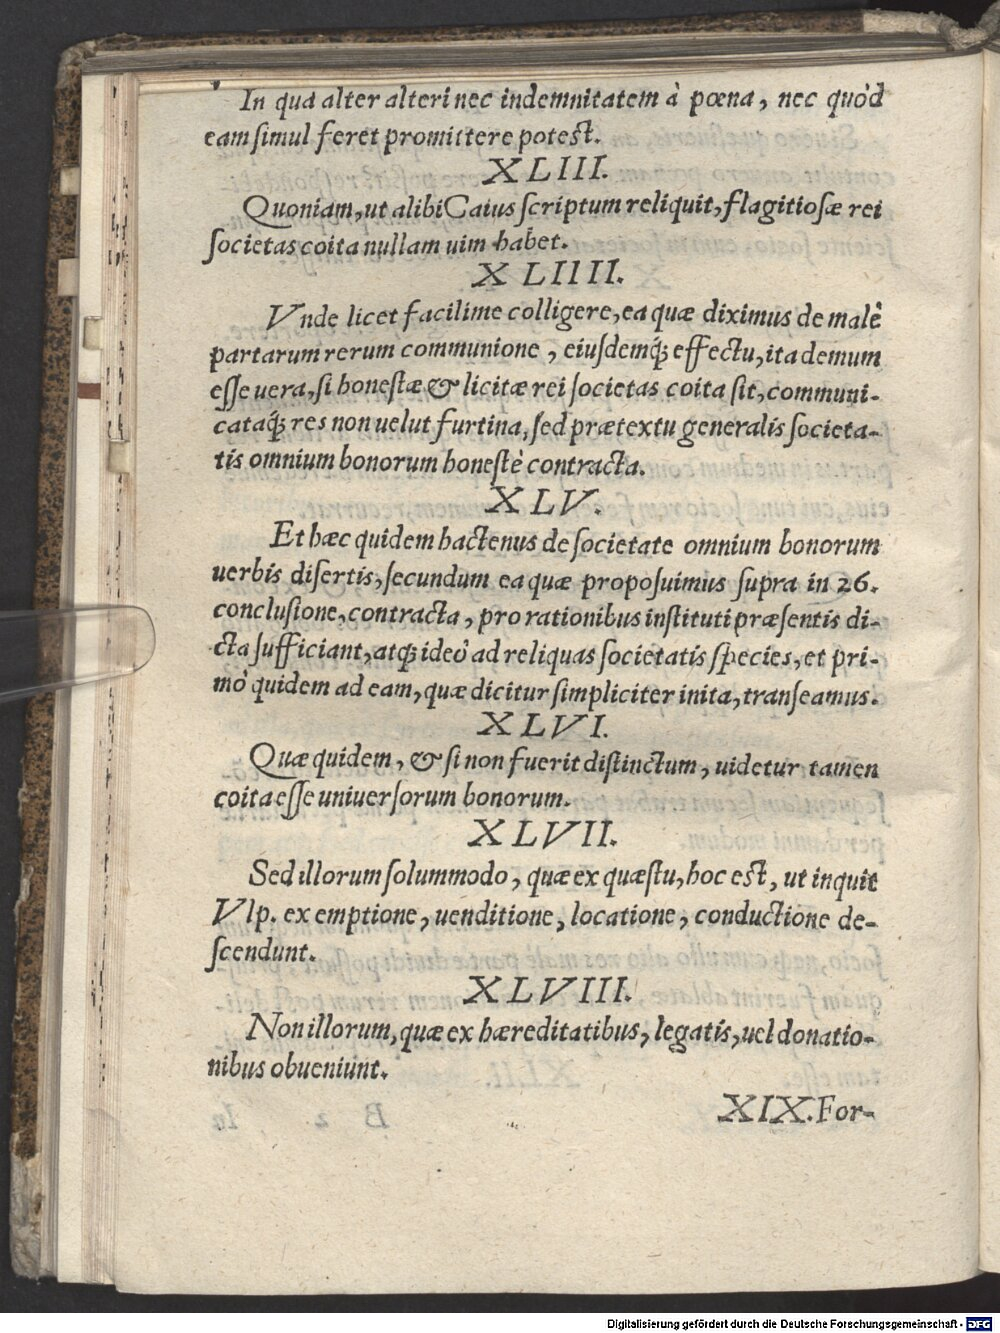 In qua alter alteri nec indemnitatem à pœna, nec quòd
eam simul feret promittere potest.
XLIII.
Quoniam, ut alibi Caius scriptum reliquit, flagitiosæ rei
societas coita nullam uim habet.
XLIIII.
Vnde licet facilime colligere, ea quæ diximus de malè
partarum rerum communione, eiusdemq́; effectu, ita demum
esse uera, si honestæ & licitæ rei societas coita sit, communi-
cataq́; res non uelut furtina, sed prætextu generalis societa-
tis omnium bonorum honestè contracta.
XLV.
Et hæc quidem hactenus de societate omnium bonorum
uerbis disertis, secundum ea quæ proposuimus supra in 26.
conclusione, contracta, pro rationibus instituti præsentis di-
cta sufficiant, atq; ideò ad reliquas societatis species, et pri-
mò quidem ad eam, quæ dicitur simpliciter inita, transeamus.
XLVI.
Quæ quidem, & si non fuerit distinctum, uidetur tamen
coita esse uniuersorum bonorum.
XLVII.
Sed illorum solummodo, quæ ex quæstu, hoc est, ut inquit
Vlp. ex emptione, uenditione, locatione, conductione de-
scendunt.
XLVIII.
Non illorum, quæ ex hæreditatibus, legatis, uel donatio-
nibus obueniunt.
XIX. For-
Digitalisierung gefördert durch die Deutsche Forschungsgemeinschaft - DFG